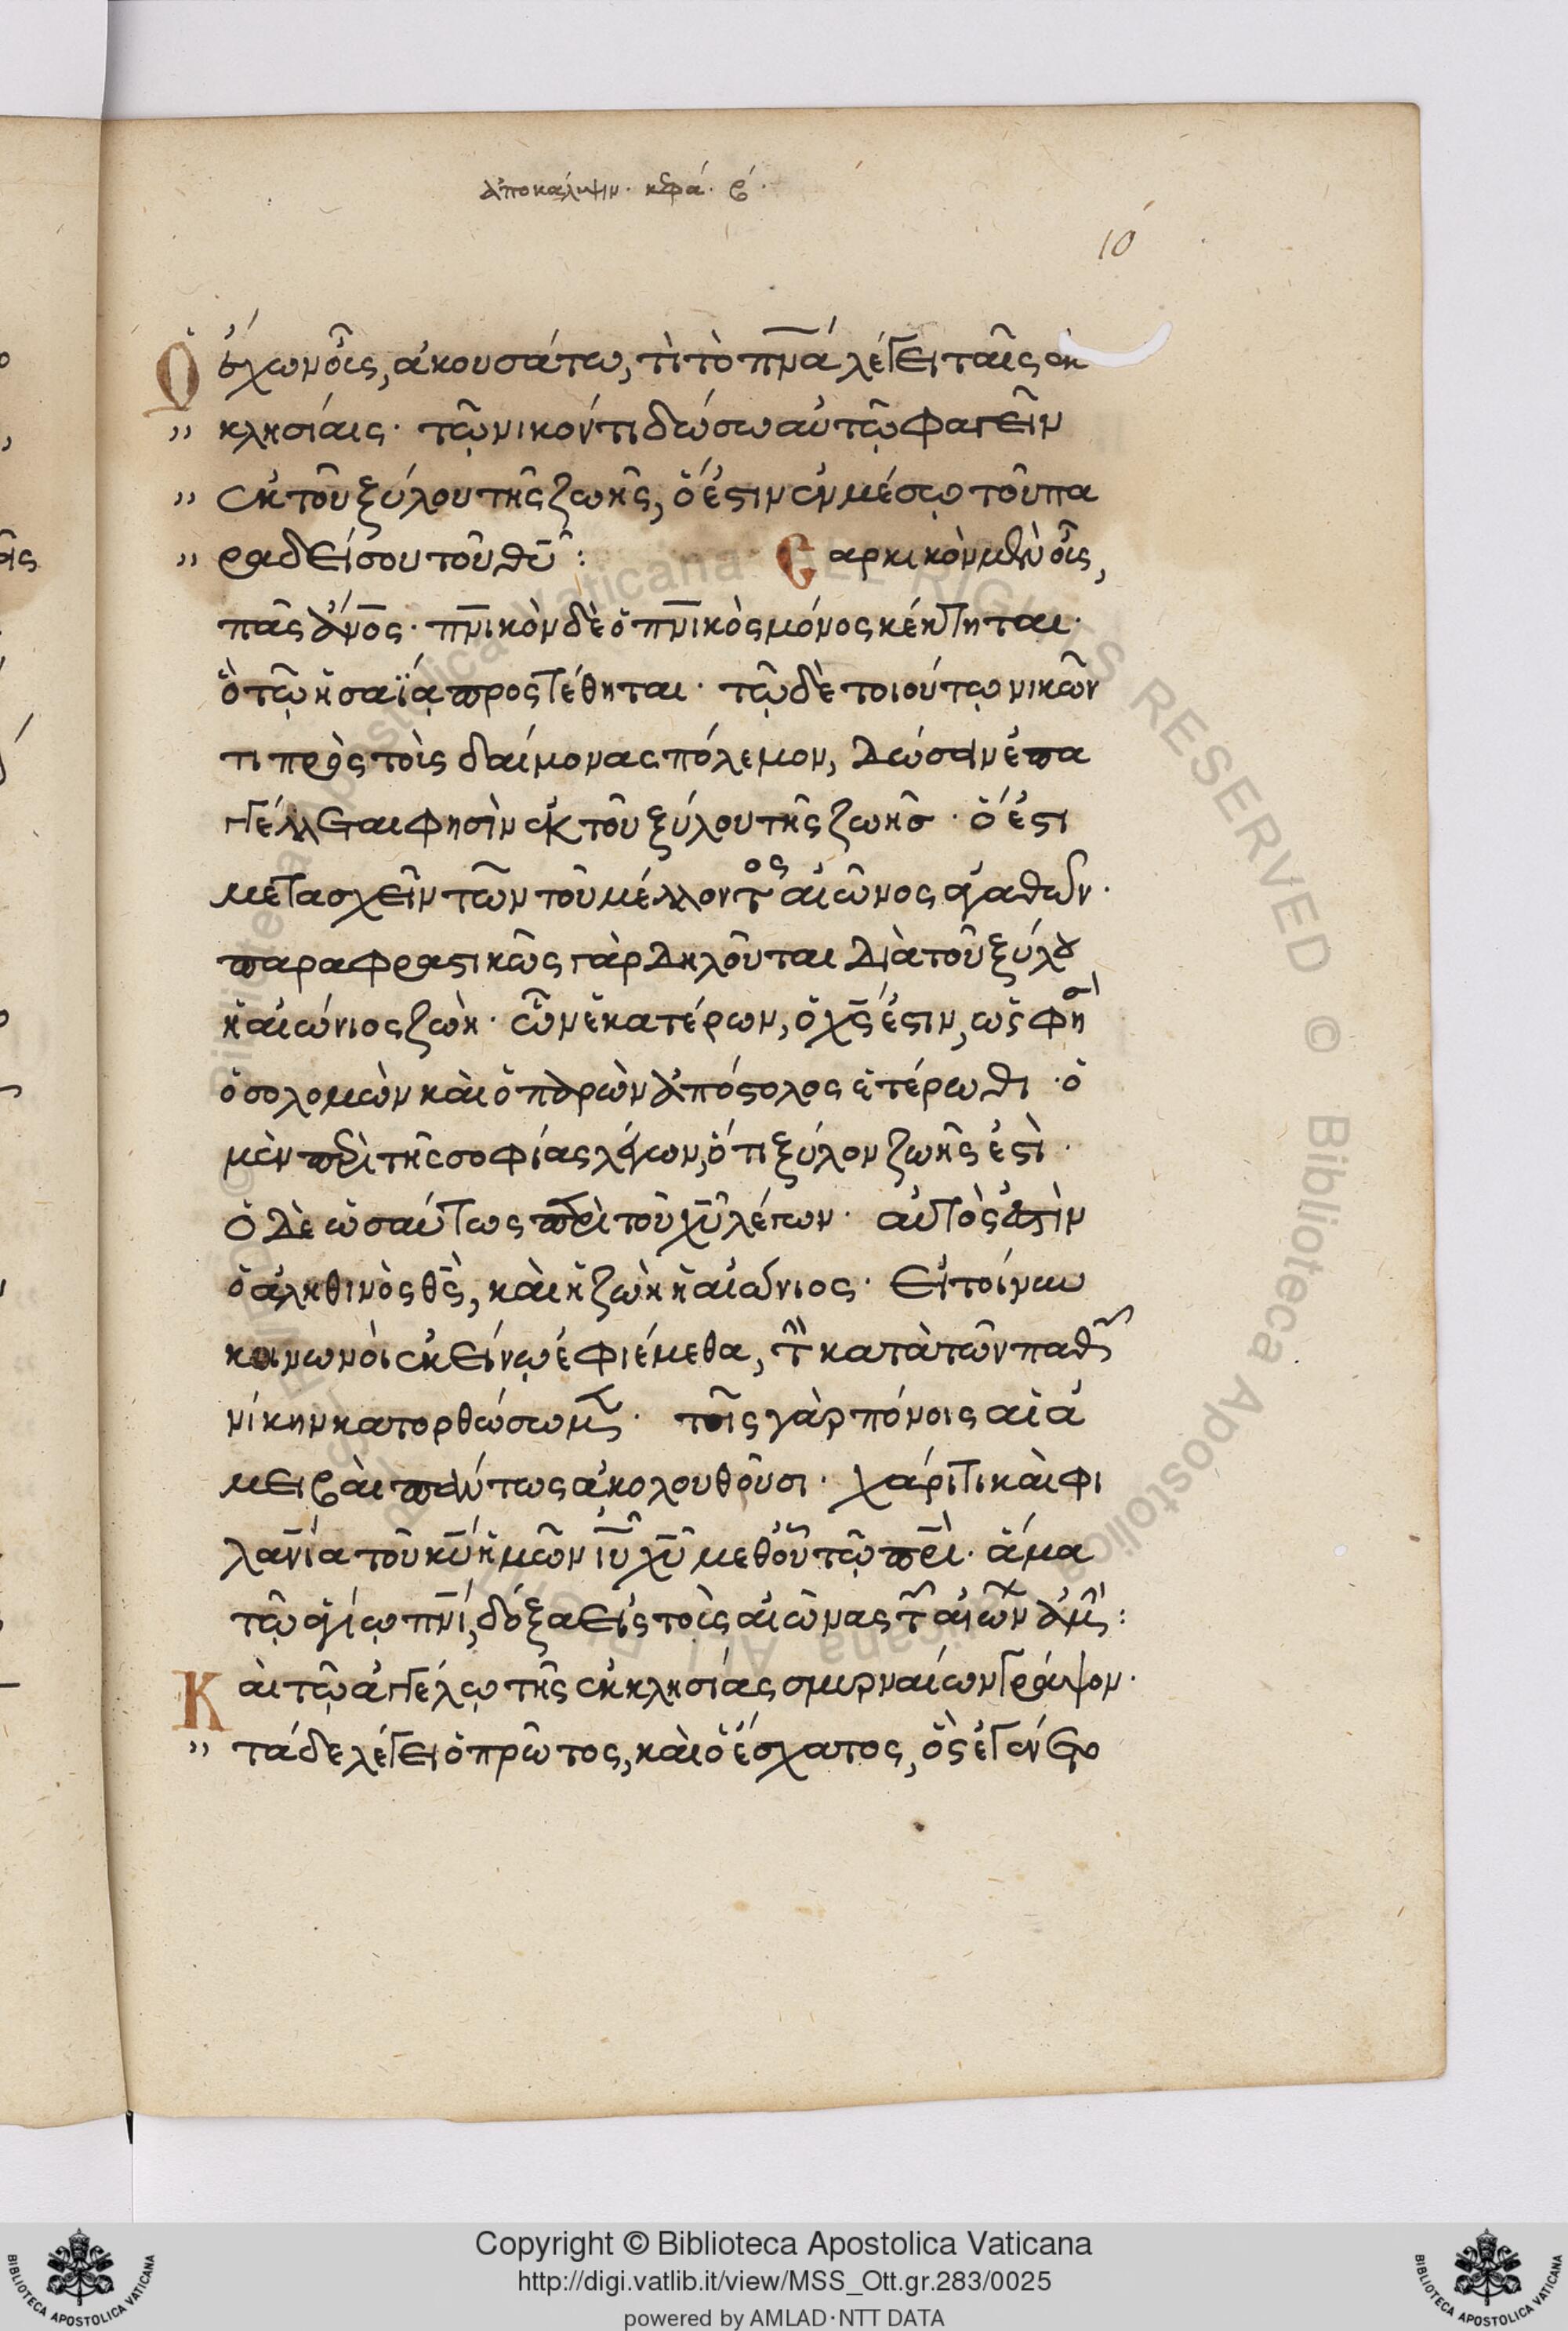 ἀποκάλυψιν. κεφά. β΄.
10
Ὁ ἔχων οὖς, ἀκουσάτω, τὶ τὸ πνᾶ λέγει ταῖς ἐκ
κλησίαις· τῶ νικόντι δώσω αὐτῶ φαγεῖν
ἐκ τοῦ ξύλου τῆς ζωῆς, ὅ ἐστιν ἐν μέσῳ τοῦ πα
ραδείσου τοῦ θῦ : Σαρκικὸν μὲν οὖς,
πᾶς ἄνος· πνικὸν δὲ ὁ πνικὸς μόνος κέκτηται·
ὃ τῶ ἡσαΐᾳ προςτέθηται· τῶ δὲ τοιούτῳ νικῶν
τι πρὸς τοὺς δαίμονας πόλεμον, δώσειν ἐπα
γγέλλεται φησὶν ἐκ τοῦ ξύλου τῆς ζωῆσ· ὅ ἐστι
μετασχεῖν τῶν τοῦ μέλλοντος αἰῶνος ἀγαθῶν·
παραφραστικῶς γὰρ δηλοῦται διὰ τοῦ ξύλου
ἡ αἰώνιος ζωὴ· ὧν ἑκατέρων, ὁ χς ἐστιν, ὥς φησι
ὁ σολομὼν καὶ ὁ παρὼν ἀπόστολος ἑτέρωθι· ὁ
μὲν περὶ τῆς σοφίας λέγων, ὅτι ξύλον ζωῆς ἐστὶ·
ὁ δὲ ὡσαύτως περὶ τοῦ χῦ λέγων· αὐτὸς ἐστὶν
ὁ ἀληθινὸς θς, καὶ ἡ ζωὴ ἡ αἰώνιος· εἰ τοίνυν
κοινωνοὶ ἐκείνῳ ἐφιέμεθα, τὴν κατὰ τῶν παθῶν
νίκην κατορθώσωμεν· τοῖς γὰρ πόνοις αἱ ἀ
μειβαὶ πάντως ἀκολουθοῦσι· χάριτι καὶ φι
λανία τοῦ κῦ ἡμῶν ἰῦ χῦ μεθοῦ τῶ πρὶ· ἅμα
τῶ ἁγίῳ πνι, δόξα εἰς τοὺς αἰῶνας τῶν αἰώνων ἀμήν :
Καὶ τῶ ἀγγέλῳ τῆς ἐκκλησίας σμυρναίων γράψον·
τάδε λέγει ὁ πρῶτος, καὶ ὁ ἔσχατος, ὃς ἐγένετο
Copyright © Biblioteca Apostolica Vaticana
http://digi.vatlib.it/view/MSS_Ott.gr.283/0025
powered by AMLAD·NTT DATA